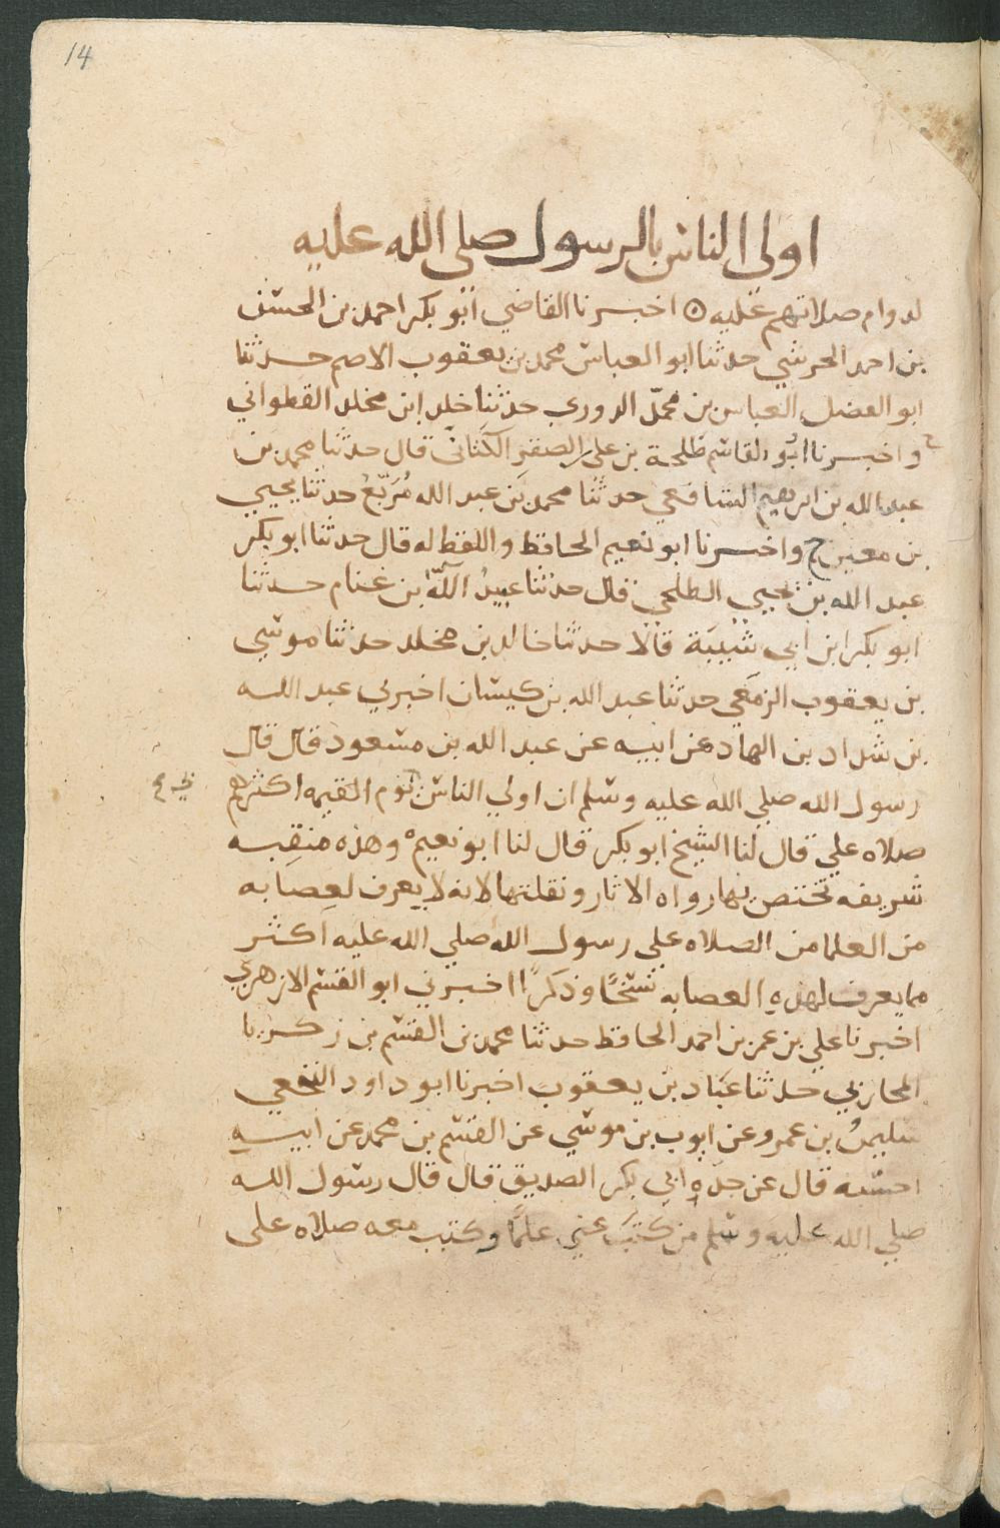 14
اولى الناس بالرسول صلى الله عليه
لدوام صلاتهم عليه ۞ اخبرنا القاضي ابو بكر احمد بن الحسن
بن احمد الحرشي حدثنا ابو العباس محمد بن يعقوب الاصم حدثنا
ابو الفضل العباس بن محمد الدوري حدثنا خلد ابن مخلد القطواني
ح واخبرنا ابو القاسم طلحة بن علي الصقر الكتاني قال حدثنا محمد بن
عبد الله بن ابرهيم الشافعي حدثنا محمد بن عبد الله مُرَبّعُ حدثنا يحيي
بن معين ح واخبرنا ابو نعيم الحافظ واللفظ له قال حدثنا ابو بكر
عبد الله بن يحيي الطلحي قال حدثنا عبيدُ اللّه بن غنام حدثنا
ابو بكر ابن ابي شيبَة قالا حدثنا خالد بن مخلد حدثنا موسي
بن يعقوب الزمَعي حدثنا عبد الله بن كيسان اخبرني عبد الله
بن شداد بن الهاد عن ابيه عن عبد الله بن مسعود قال قال
رسول الله صلي الله عليه وسلم ان اولي الناس يوم القيمه اكثرهم
صلاه علي قال لنا الشيخ ابو بكر قال لنا ابو نعيم ه وهذه منقِبه
شريفه تختص بها رواه الاثار ونقلتها لانه لا يعرف لعِصابه
من العلما من الصلاه على رسول الله صلي الله عليه اكثر
مما يعرف لهذهِ العصابه نسخًا وذكرًا اخبرني ابو القسم الازهري
اخبرنا علي بن عمر بن احمد الحافظ حدثنا محمد بن القسم بن زكريا
المحاربي حدثنا عَباد بن يعقوب اخبرنا ابو داود النخعي
سليمنُ بن عمرو عن ايوب بن موسي عن القسم بن محمد عن ابيهِ
احسبه قال عن جدّهِ ابي بكر الصديق قال قال رسول الله
صلي الله عليه وسلم من كتبَ عني علمًا وكتب معه صلاه على